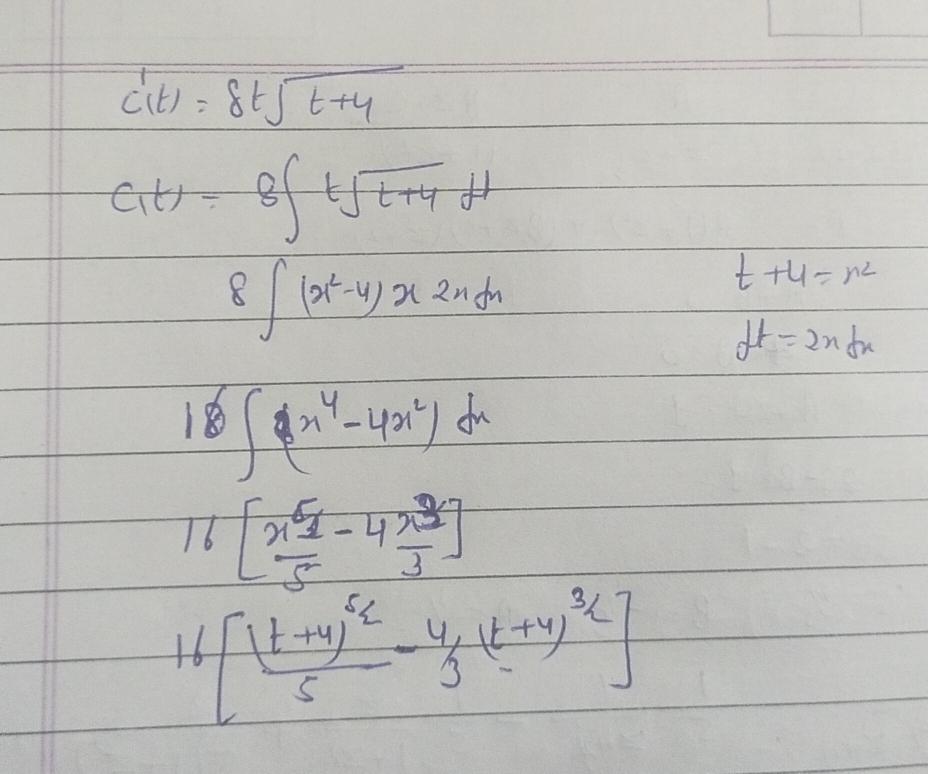 C'(t) = 8t√(t+4)
C(t) = 8∫ t√(t+4) dt
8∫ (x²-4) x 2x dx
t+4 = x²
dt = 2x dx
16∫ (x⁴-4x²) dx
16 [x⁵/5 - 4x³/3]
16 [(t+4)^(5/2)/5 - 4/3 (t+4)^(3/2)]